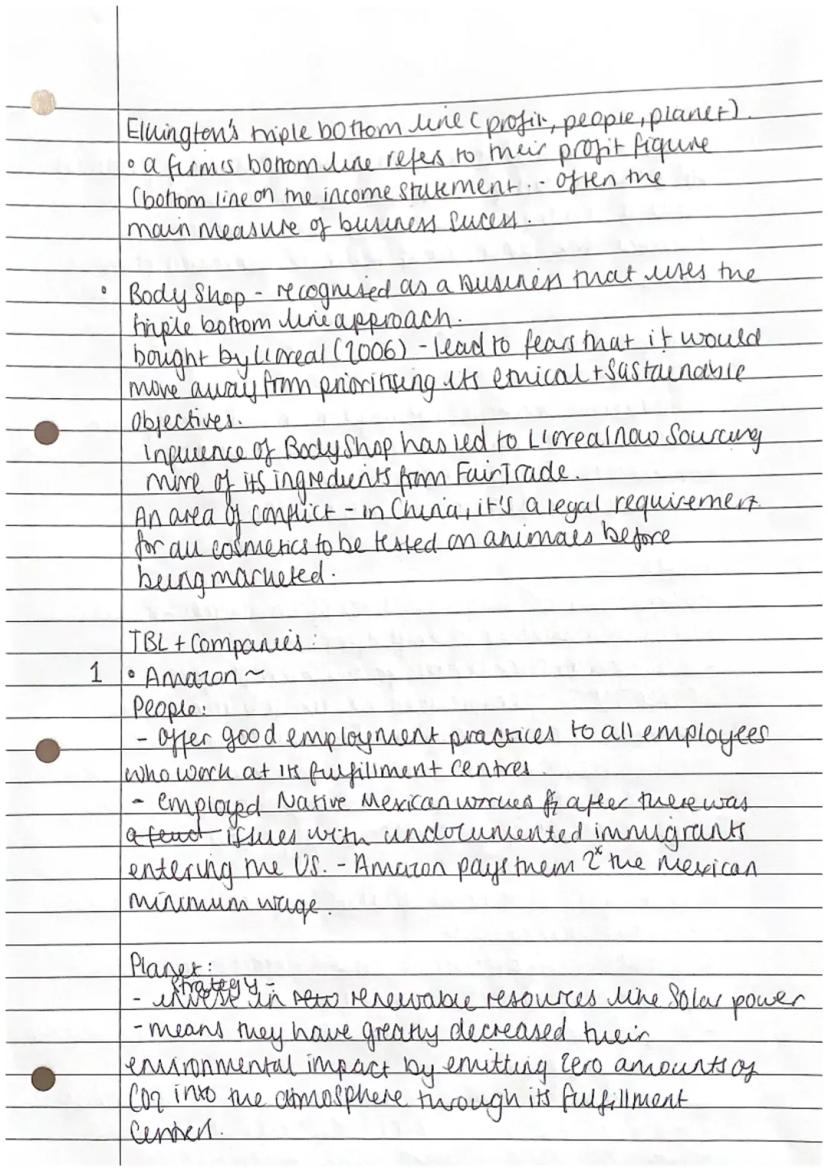 Elkington's triple bottom line (profit, people, planet).
• a firm's bottom line refers to their profit figure
(bottom line on the income statement.. - often the
main measure of business sucess.
• Body Shop - recognised as a business that uses the
triple bottom line approach.
bought by L'oreal (2006) - lead to fears that it would
move away from prioritising its ethical + sustainable
objectives.
Influence of Body Shop has led to L'oreal now sourcing
more of its ingredients from FairTrade.
An area of conflict - in China, it's a legal requirement
for all cosmetics to be tested on animals before
being marketed.
TBL + Companies:
1 • Amazon ~
People:
- offer good employment practices to all employees
who work at its fulfillment centres.
- employed Native Mexican after there was
a feud issues with undocumented immigrants
entering the US. - Amazon pays them 2x the mexican
minimum wage.
Planet:
strategy -
- invest in renewable resources like solar power
- means they have greatly decreased their
environmental impact by emitting zero amounts of
CO2 into the atmosphere through its fulfillment
centers.